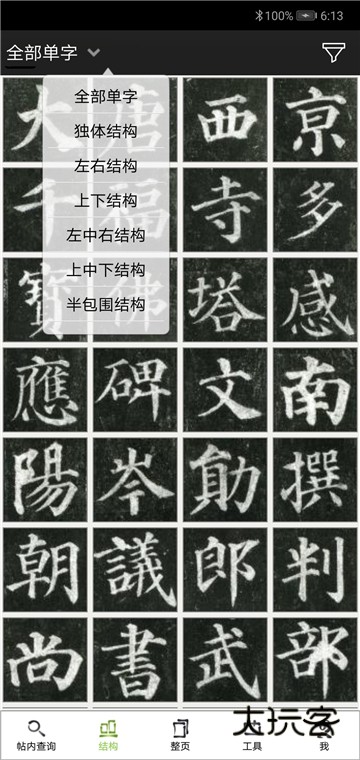 100% 6:13
全部单字
全部单字
独体结构
左右结构
上下结构
左中右结构
上中下结构
半包围结构
大 唐 西 京
千 福 寺 多
寶 佛 塔 感
應 碑 文 南
陽 岑 勛 撰
朝 議 郎 判
尚 書 武 部
大玩客
帖内查询 结构 整页 工具 我